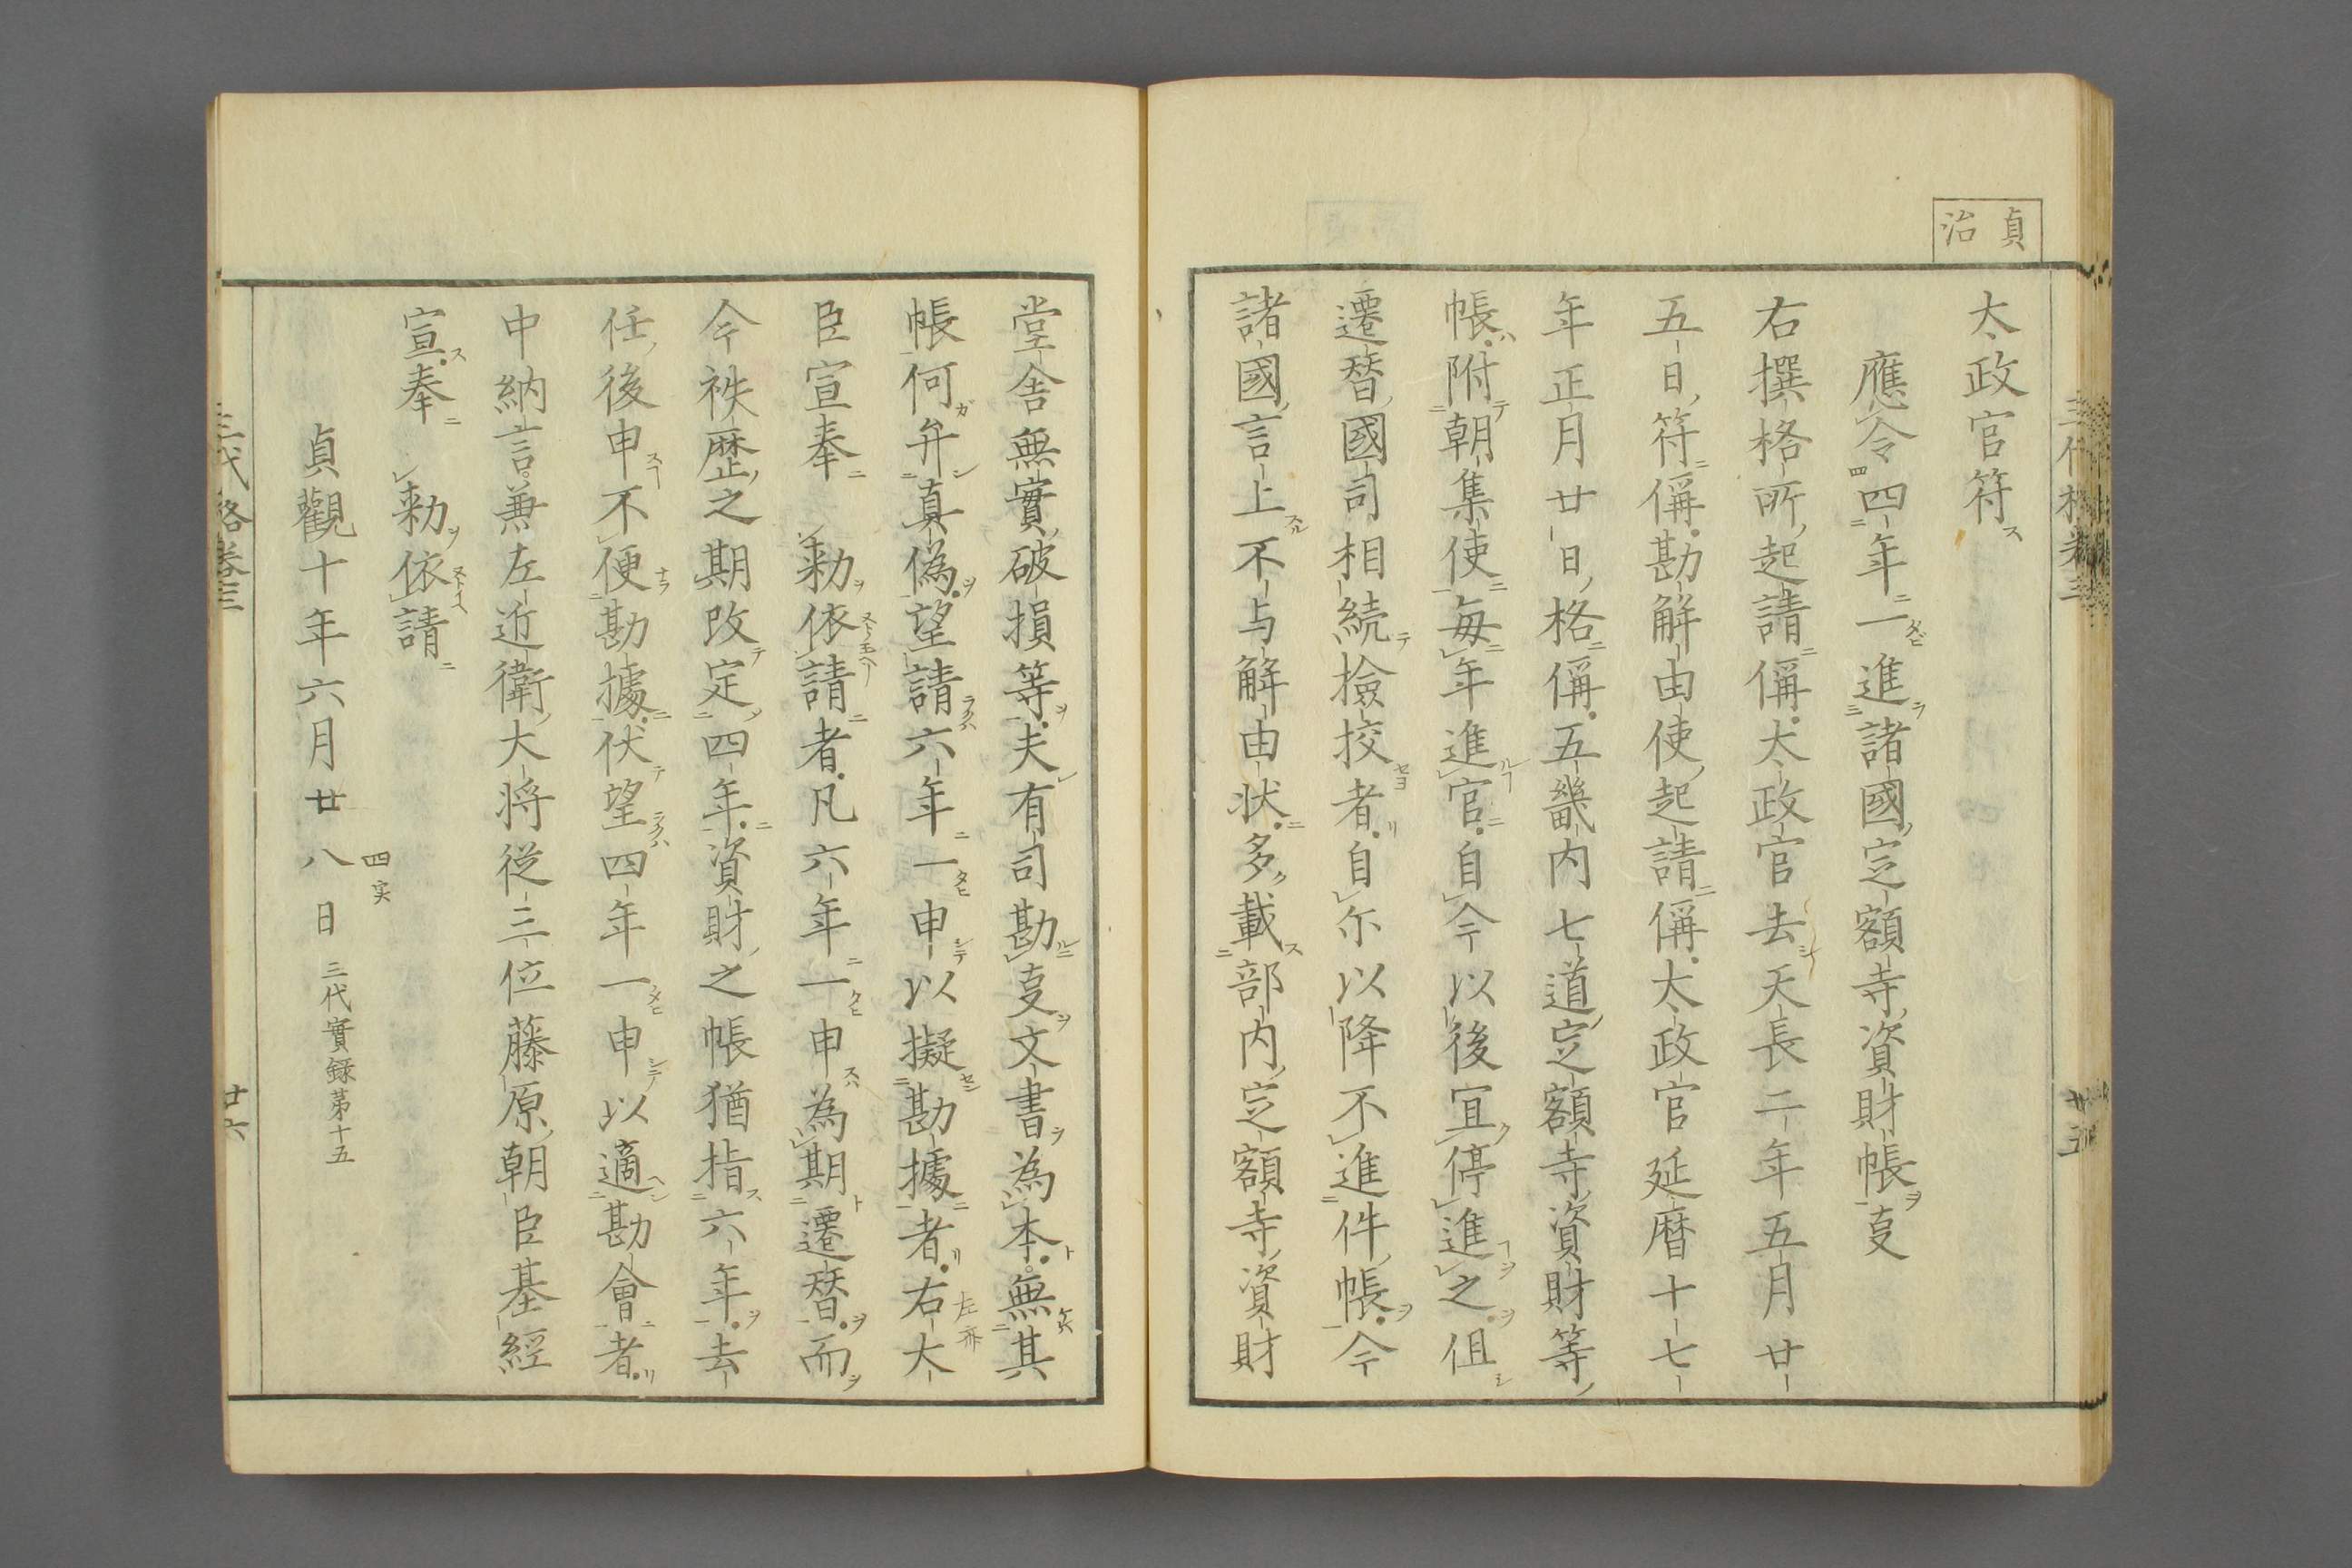 貞治
太政官符
應令四年一進諸國定額寺資財帳㕝
右撰格所起請偁太政官去天長二年五月廿
五日符偁勘解由使起請偁太政官延暦十七
年正月廿日格偁五畿内七道定額寺資財等
帳附朝集使毎年進官自今以後宜停進之但
遷替國司相続撿挍者自尓以降不進件帳今
諸國言上不与解由状多載部内定額寺資財
堂舎無實破損等夫有司勘㕝文書為本無其
帳何弁真偽望請六年一申以擬勘據者右大
臣宣奉 勅依請者凡六年一申為期遷替而
今秩歴之期改定四年資財之帳猶指六年去
任後申不便勘據伏望四年一申以適勘會者
中納言兼左近衛大将従三位藤原朝臣基經
宣奉 勅依請
貞觀十年六月廿八日 三代實録第十五
四実
左亦
三代格卷三
廿六